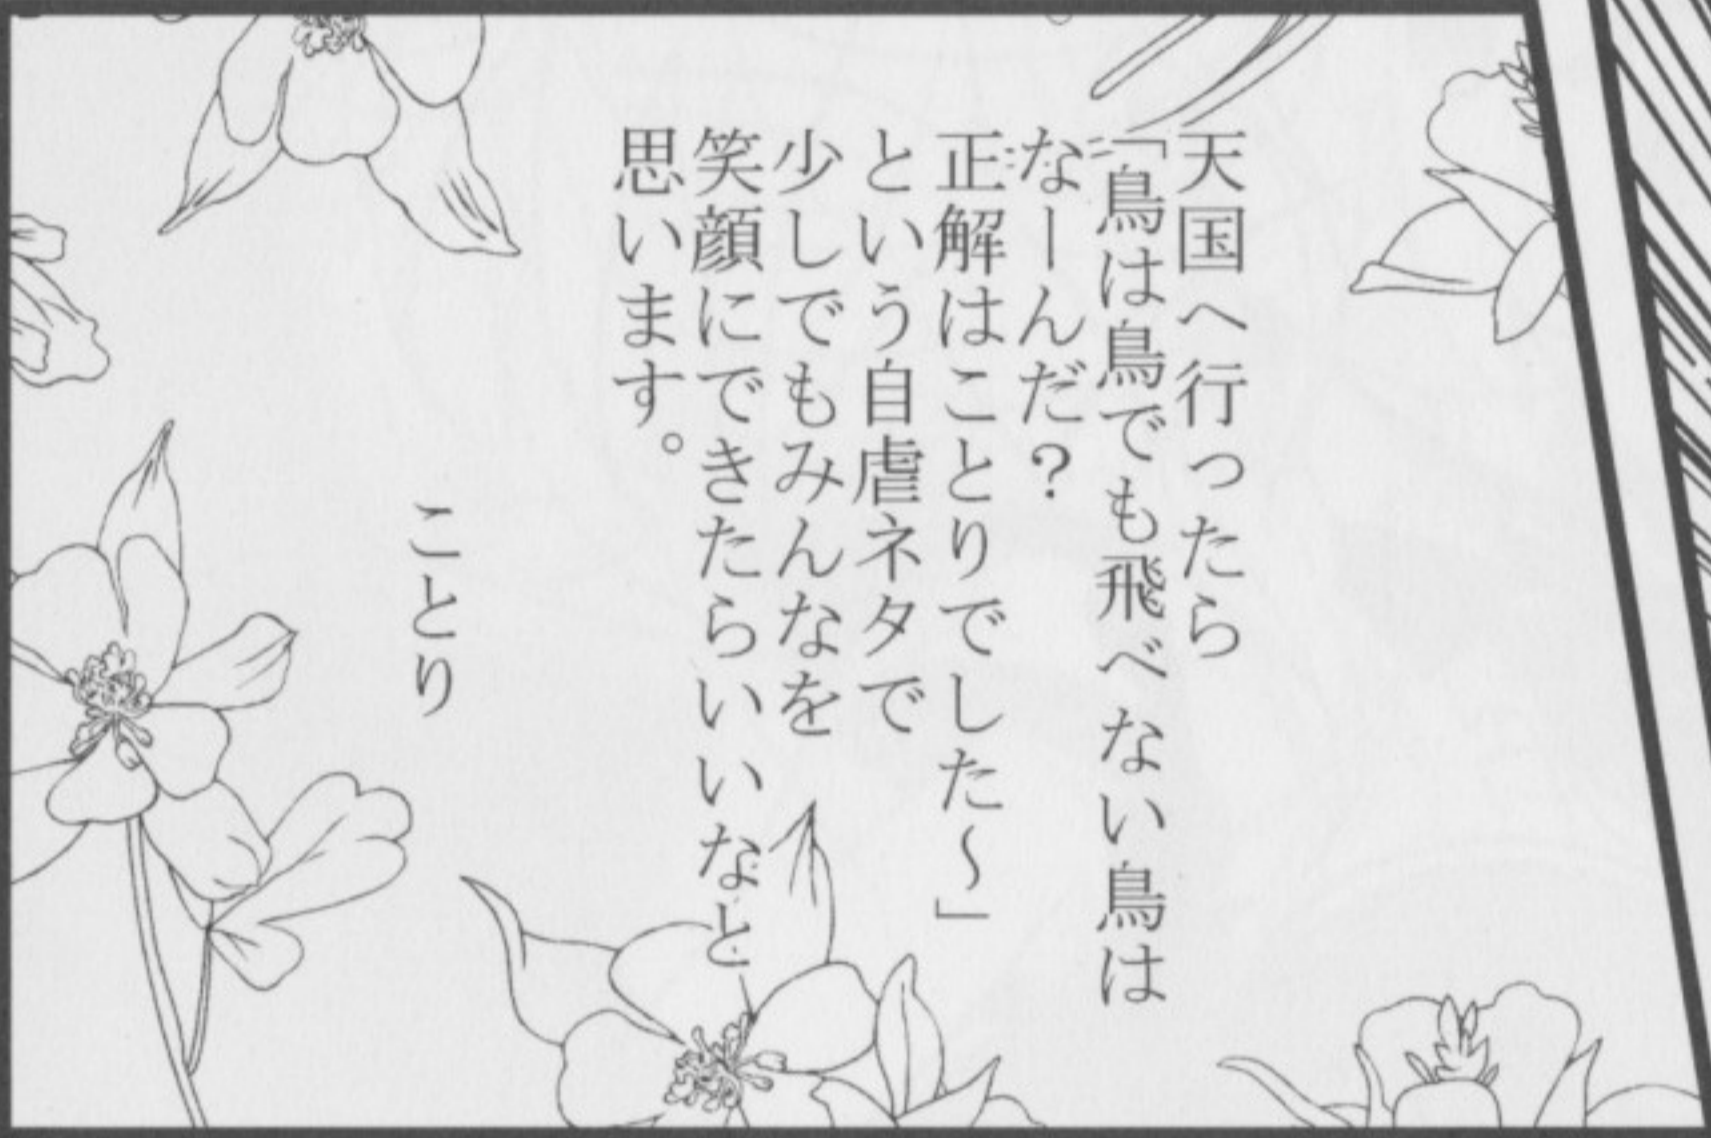 天国へ行ったら
「鳥は鳥でも飛べない鳥は
なーんだ？
正解はことりでした～」
という自虐ネタで
少しでもみんなを
笑顔にできたらいいなと
思います。
ことり